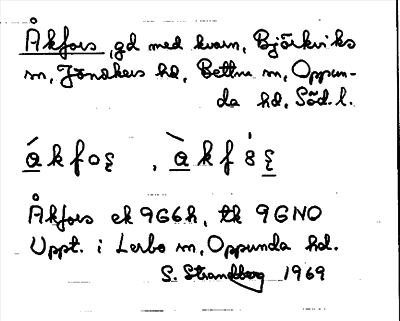 Åkfors, gd med kvarn, Björkviks
sn, Jönåkers hd, Bettna sn, Oppun-
da hd, Söd. l.
Åkfors ek 9G6h, tk 9GNO
Uppt. i Lerbo sn, Oppunda hd.
S. Strandberg 1969